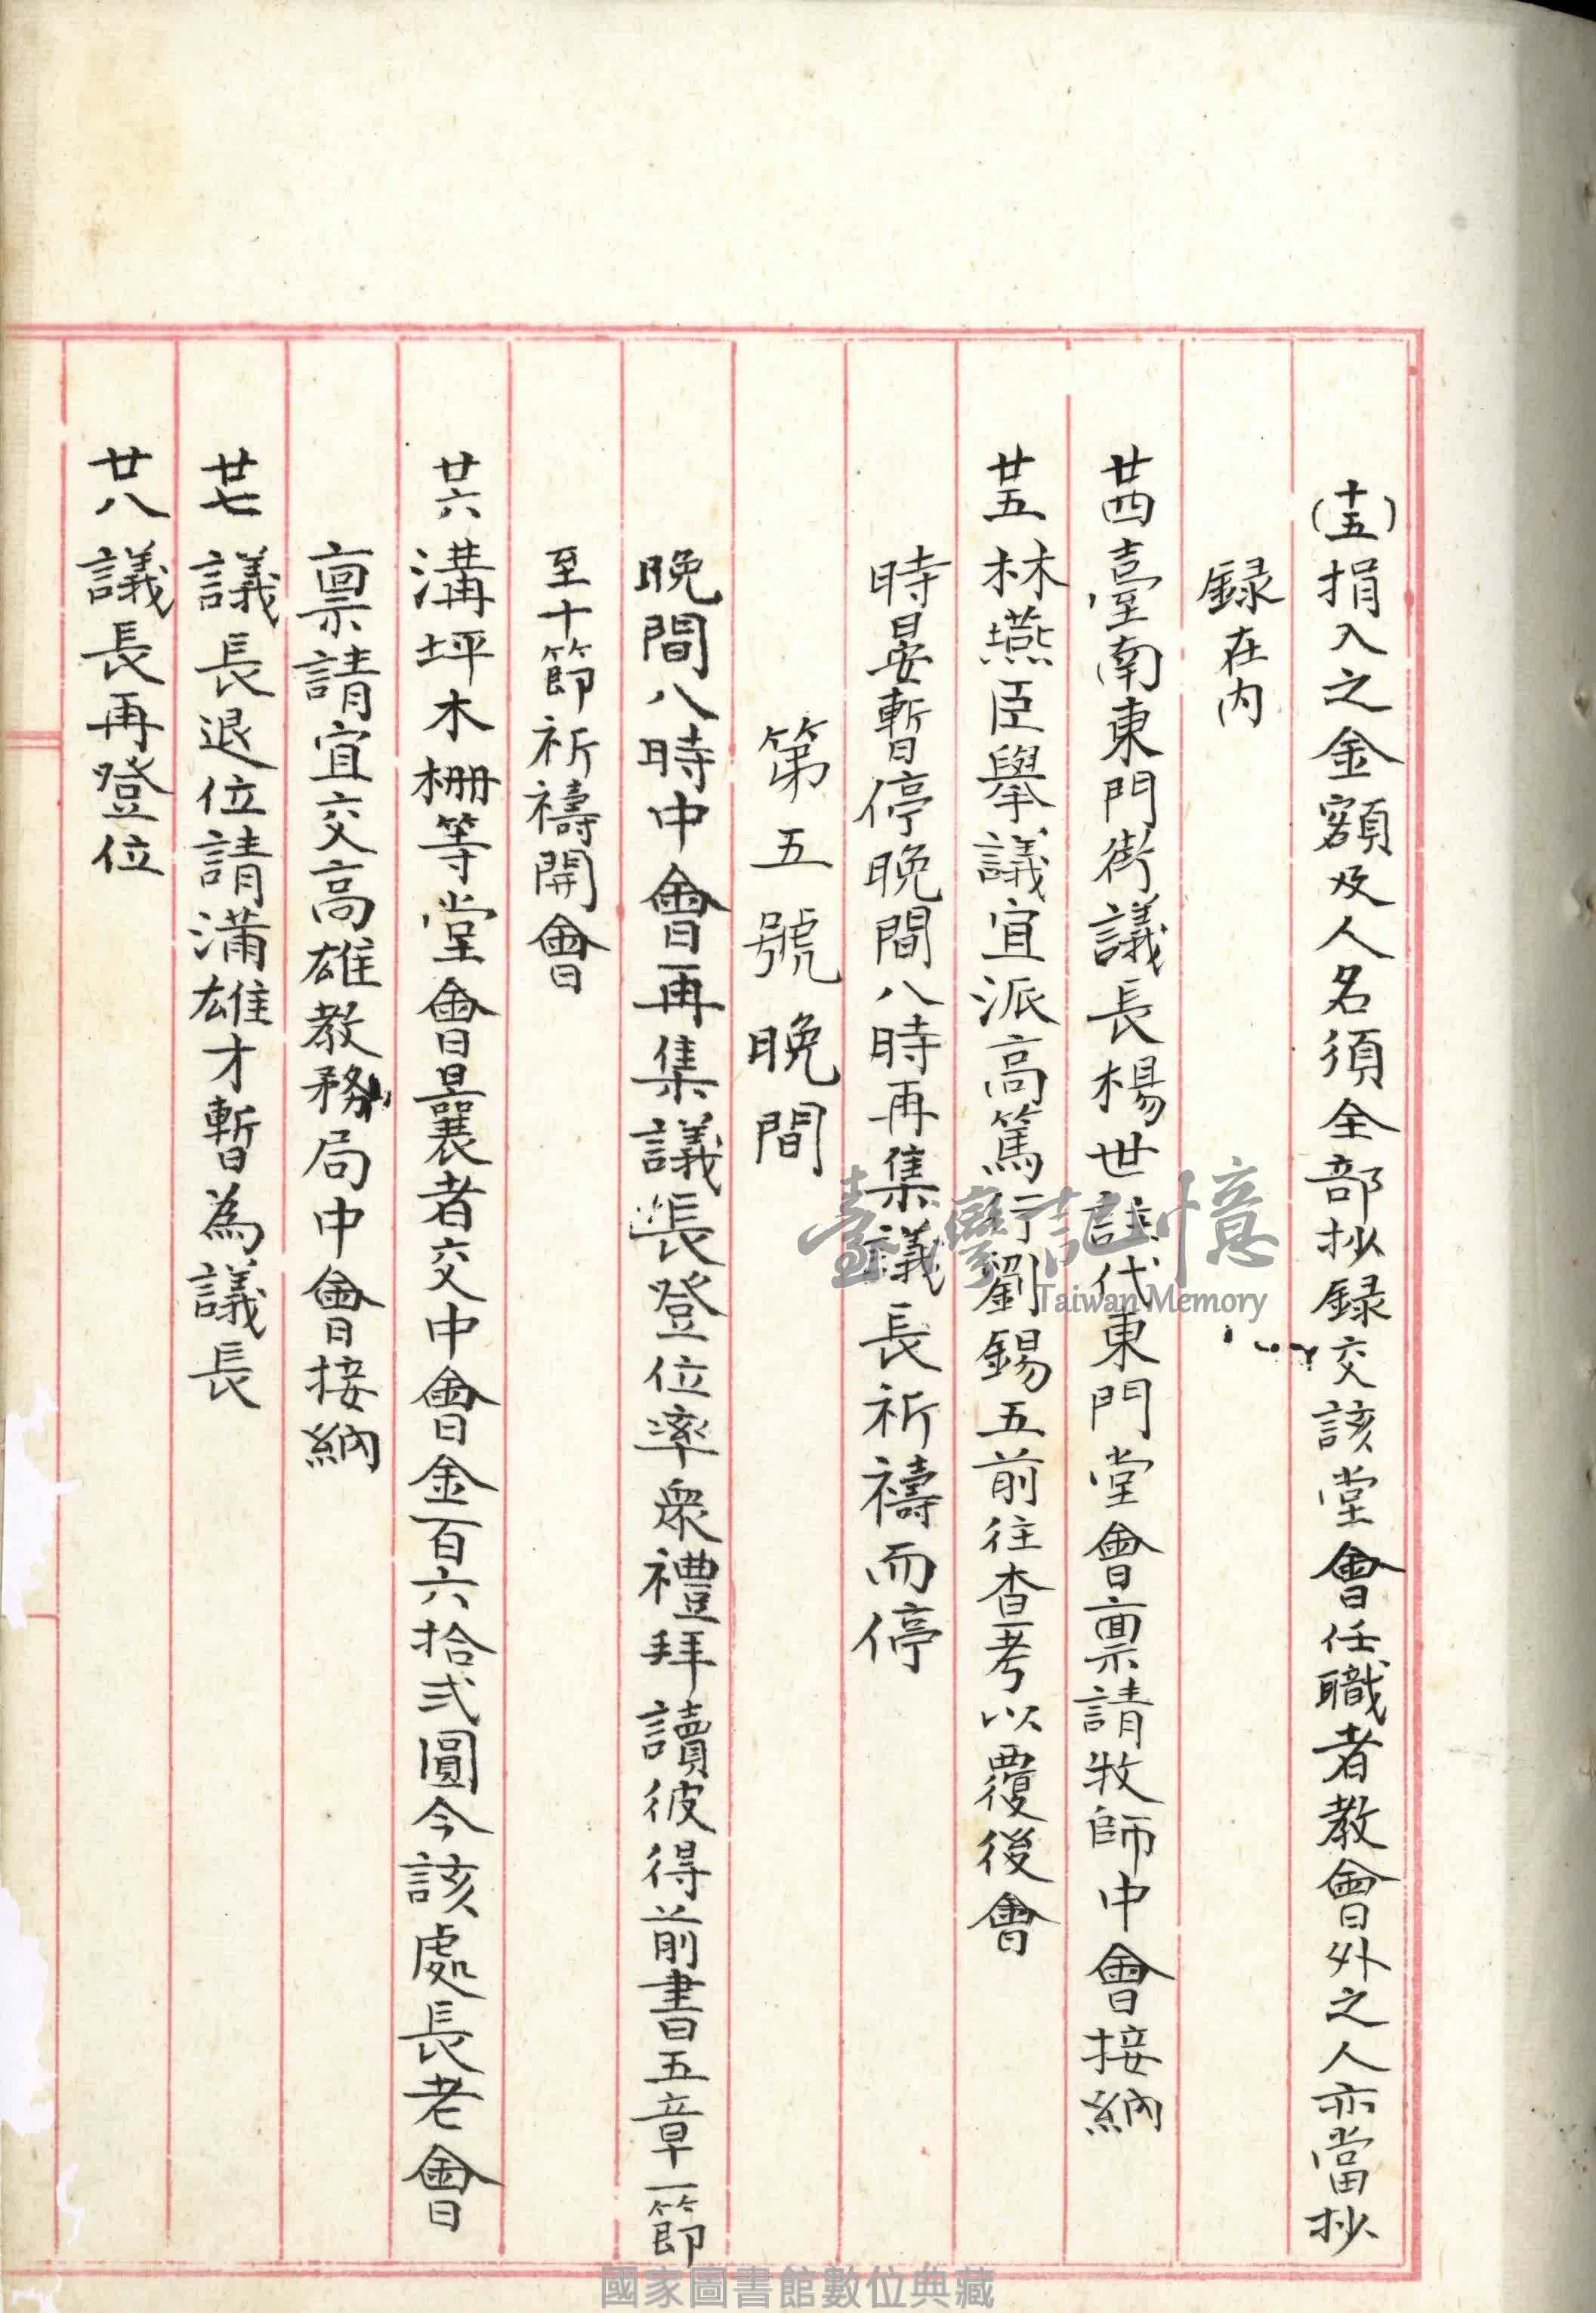 (十五)捐入之金額及人名須全部抄録交該堂會任職者教會外之人亦當抄
録在內
廿四臺南東門街議長楊世註代東門堂會稟請牧師中會接納
廿五林燕臣舉議宜派高篤行劉錫五前往查考以覆後會
時晏暫停晚間八時再集議長祈禱而停
第五號晚間
晚間八時中會再集議長登位率衆禮拜讀彼得前書五章一節
至十節祈禱開會
廿六溝坪木柵等堂會曩者交中會金百六拾弍圓今該處長老會
稟請宜交高雄教務局中會接納
廿七議長退位請滿雄才暫為議長
廿八議長再登位
臺灣記憶
Taiwan Memory
國家圖書館數位典藏